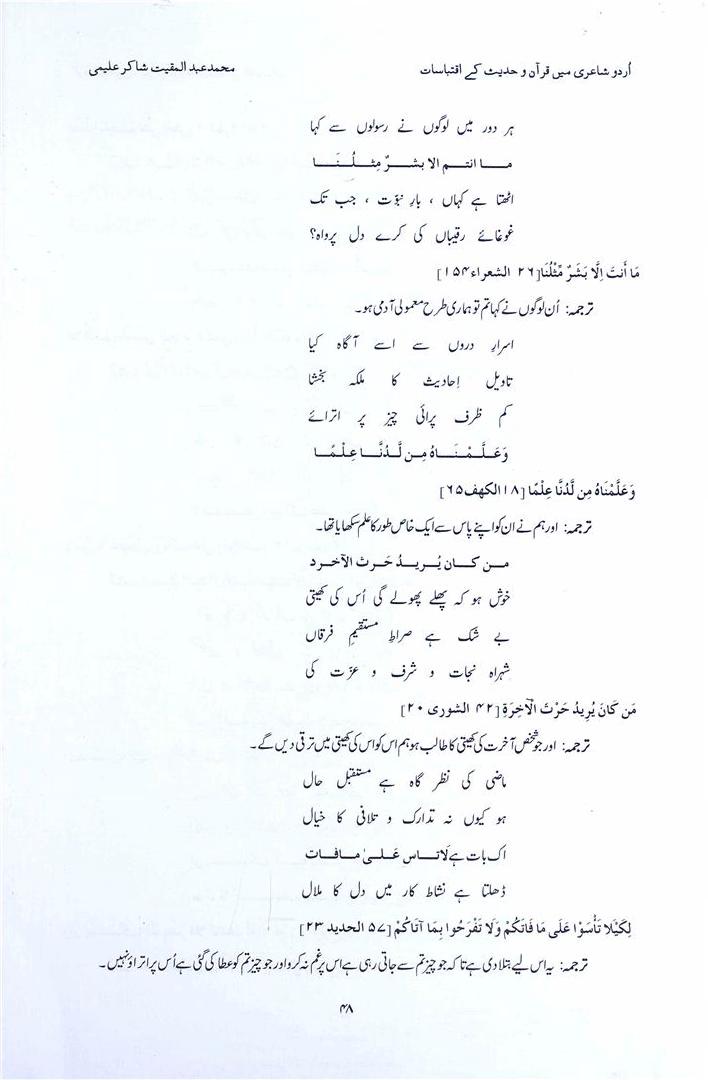 اُردو شاعری میں قرآن و حدیث کے اقتباسات
محمد عبد المقیت شاکر علیمی
ہر دور میں لوگوں نے رسولوں سے کہا
مـا انتـم الا بشـرٌ مِثـلُـنَـا
اٹھتا ہے کہاں ، بارِ نبوّت ، جب تک
غوغائے رقیباں کی کرے دل پرواہ؟
مَا أَنتَ اِلَّا بَشَرٌ مِّثْلُنَا[۲۶ الشعراء۱۵۴]
ترجمہ: اُن لوگوں نے کہا تم تو ہماری طرح معمولی آدمی ہو۔
اسرارِ دروں سے اسے آگاہ کیا
تاویلِ اِحادیث کا ملکہ بخشا
کم ظرف پرائی چیز پر اترائے
وَعَـلَّـمْـنَـاهُ مِـن لَّـدُنَّـا عِـلْـمًـا
وَعَلَّمْنَاهُ مِن لَّدُنَّا عِلْمًا [۱۸الکهف۶۵]
ترجمہ: اور ہم نے ان کو اپنے پاس سے ایک خاص طور کا علم سکھایا تھا۔
مـن کـان یُـریـدُ حَـرث الآخـرد
خوش ہو کہ پھلے پھولے گی اُس کی کھیتی
بے شک ہے صراطِ مستقیمِ فرقاں
شہراہ نجات و شرف و عزّت کی
مَن كَانَ يُرِيدُ حَرْثَ الْآخِرَةِ [۴۲ الشوری ۲۰]
ترجمہ: اور جو شخص آخرت کی کھیتی کا طالب ہو ہم اس کو اس کی کھیتی میں ترقی دیں گے۔
ماضی کی نظر گاہ ہے مستقبل حال
ہو کیوں نہ تدارک و تلافی کا خیال
اک بات ہے لَاتـاس عَـلـیٰ مـافـات
ڈھلتا ہے نشاط کار میں دل کا ملال
لِكَيْلَا تَأْسَوْا عَلَى مَا فَاتَكُمْ وَلَا تَفْرَحُوا بِمَا آتَاكُمْ [۵۷ الحدید ۲۳]
ترجمہ: یہ اس لیے بتلا دی ہے تا کہ جو چیز تم سے جاتی رہی ہے اس پر غم نہ کرو اور جو چیز تم کو عطا کی گئی ہے اُس پر اتراؤ نہیں۔
۴۸